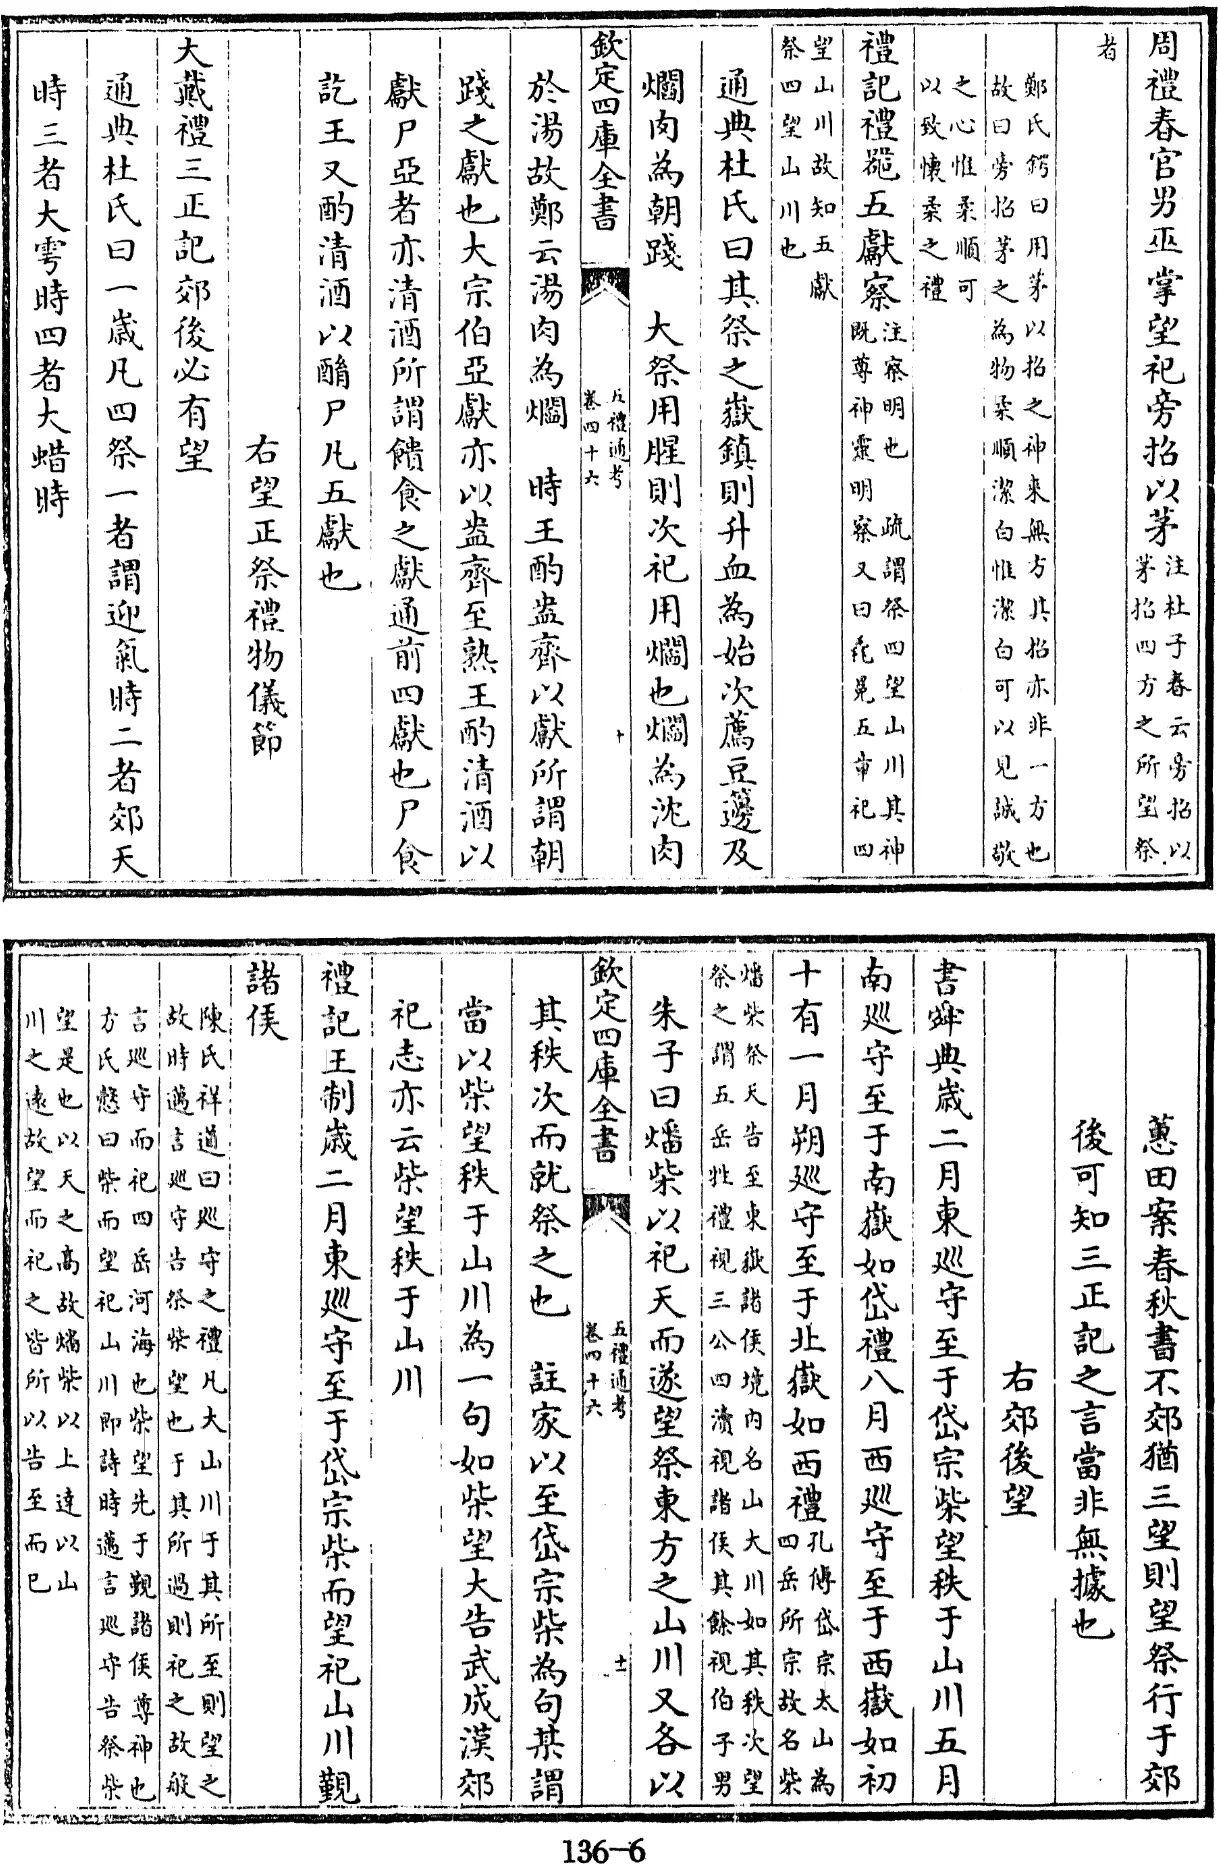 周禮春官男巫掌望祀旁招以茅注杜子春云旁招以茅招四方之所望祭
者
鄭氏鍔曰用茅以招之神來無方其招亦非一方也故曰旁招茅之為物柔順潔白惟潔白可以見誠敬
之心惟柔順可以致懷柔之禮
禮記禮器五獻察注察明也 疏謂祭四望山川其神既尊神靈明察又曰毳冕五章祀四
望山川故知五獻祭四望山川也
通典杜氏曰其祭之嶽鎮則升血為始次薦豆籩及
爓肉為朝踐 大祭用腥則次祀用爓也爓為沈肉
欽定四庫全書 五禮通考卷四十六 十
於湯故鄭云湯肉為爓 時王酌盎齊以獻所謂朝
踐之獻也大宗伯亞獻亦以盎齊至熟王酌清酒以
獻尸亞者亦清酒所謂饋食之獻通前四獻也尸食
訖王又酌清酒以酳尸凡五獻也
右望正祭禮物儀節
大戴禮三正記郊後必有望
通典杜氏曰一歲凡四祭一者謂迎氣時二者郊天
時三者大雩時四者大蜡時
蕙田案春秋書不郊猶三望則望祭行于郊
後可知三正記之言當非無據也
右郊後望
書舜典歲二月東巡守至于岱宗柴望秩于山川五月
南巡守至于南嶽如岱禮八月西巡守至于西嶽如初
十有一月朔巡守至于北嶽如西禮孔傳岱宗太山為四岳所宗故名柴
燔柴祭天告至東嶽諸侯境內名山大川如其秩次望祭之謂五岳牲禮視三公四瀆視諸侯其餘視伯子男
朱子曰燔柴以祀天而遂望祭東方之山川又各以
欽定四庫全書 五禮通考卷四十六 十一
其秩次而就祭之也 註家以至岱宗柴為句某謂
當以柴望秩于山川為一句如柴望大告武成漢郊
祀志亦云柴望秩于山川
禮記王制歲二月東巡守至于岱宗柴而望祀山川覲
諸侯
陳氏祥道曰巡守之禮凡大山川于其所至則望之故時邁言巡守告祭柴望也于其所過則祀之故般
言巡守而祀四岳河海也柴望先于覲諸侯尊神也方氏慤曰柴而望祀山川即詩時邁言巡守告祭柴
望是也以天之高故燔柴以上達以山川之遠故望而祀之皆所以告至而已
136-6